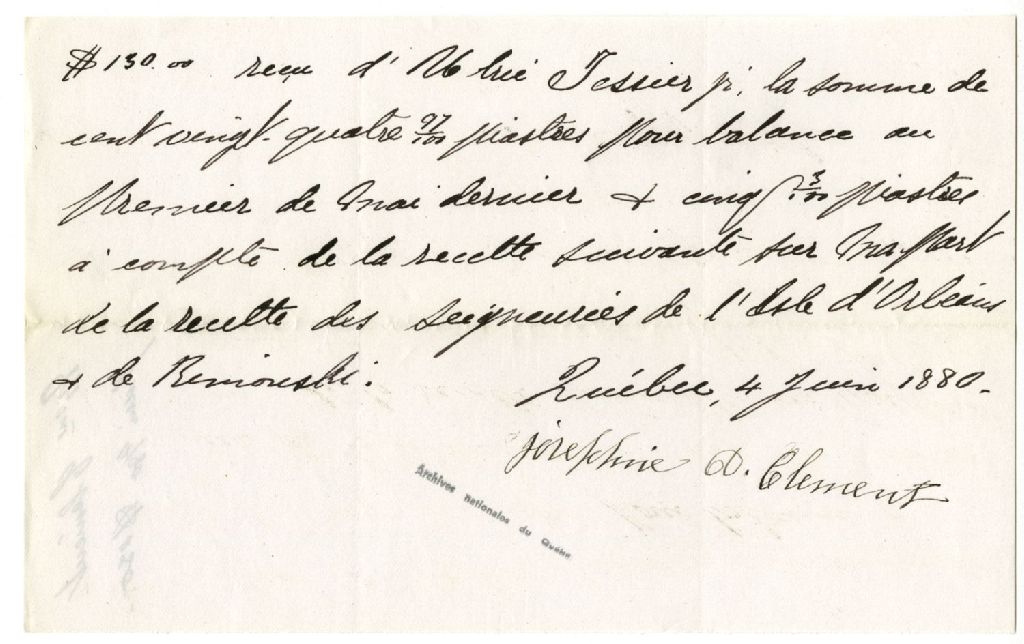 $130.00 reçu d'Ulric Tessier jr. la somme de
cent vingt-quatre 97/100 piastres pour balance au
premier de Mai dernier & cinq 3/100 piastres
à compte de la recette suivante sur ma part
de la recette des seigneuries de l'Isle d'Orléans
& de Rimouski.
Québec, 4 Juin 1880.
Joséphine D. Clement
Archives nationales du Québec